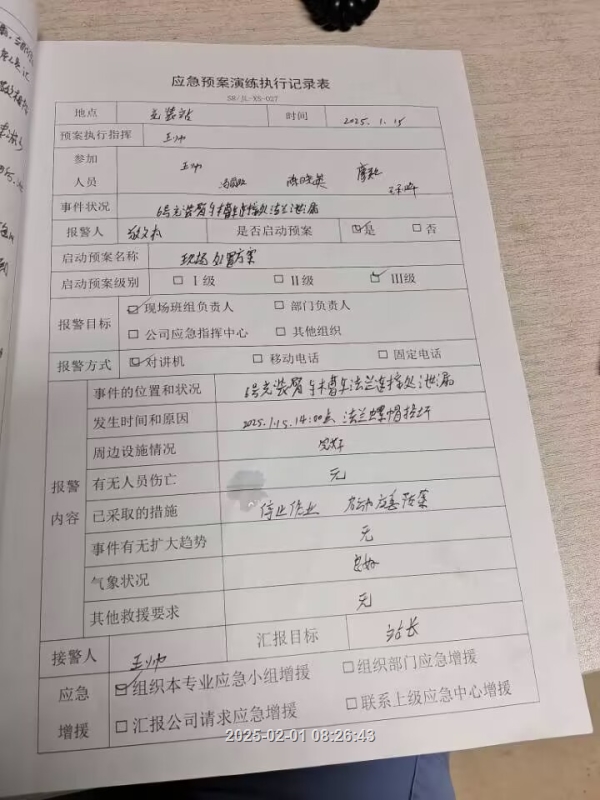 应急预案演练执行记录表
SH/JL-XS-027
地点 充装站 时间 2025.1.15
预案执行指挥 王帅
参加人员 王帅
事件状况 6号充装臂与槽车连接处法兰泄漏
报警人 是否启动预案 ☑是 □否
启动预案名称 现场处置方案
启动预案级别 □I级 □II级 ☑III级
报警目标 ☑现场班组负责人 □部门负责人
□公司应急指挥中心 □其他组织
报警方式 ☑对讲机 □移动电话 □固定电话
报警内容
事件的位置和状况 6号充装臂与槽车法兰连接处泄漏
发生时间和原因 2025.1.15.14:00点 法兰螺帽松动
周边设施情况 完好
有无人员伤亡 无
已采取的措施 停止作业 启动应急预案
事件有无扩大趋势 无
气象状况 良好
其他救援要求 无
接警人 王帅 汇报目标 站长
应急增援 ☑组织本专业应急小组增援 □组织部门应急增援
□汇报公司请求应急增援 □联系上级应急中心增援
2025-02-01 08:26:43